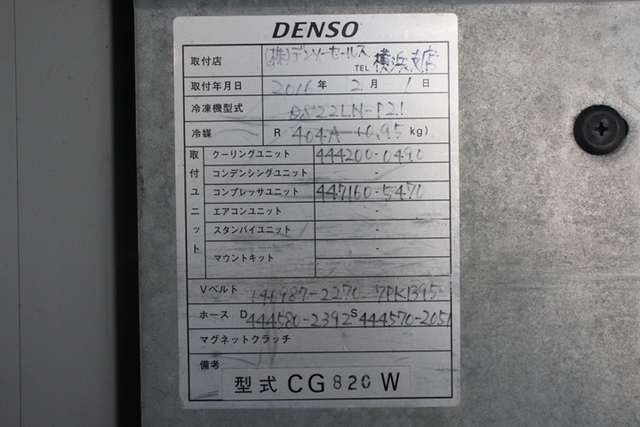 DENSO
取付店 (株)デンソーセールス TEL 横浜支店
取付年月日 2016 年 2 月 1 日
冷凍機型式 22LN-P21
冷媒 R 404A (0.95 kg)
取付ユニット
クーリングユニット 444200-0490
コンデンシングユニット -
コンプレッサユニット 447160-5470
エアコンユニット -
スタンバイユニット -
マウントキット -
-
Vベルト 146987-2270 7PK1395
ホース D 444580-2392 S 444570-2051
マグネットクラッチ
備考
型式 CG820W